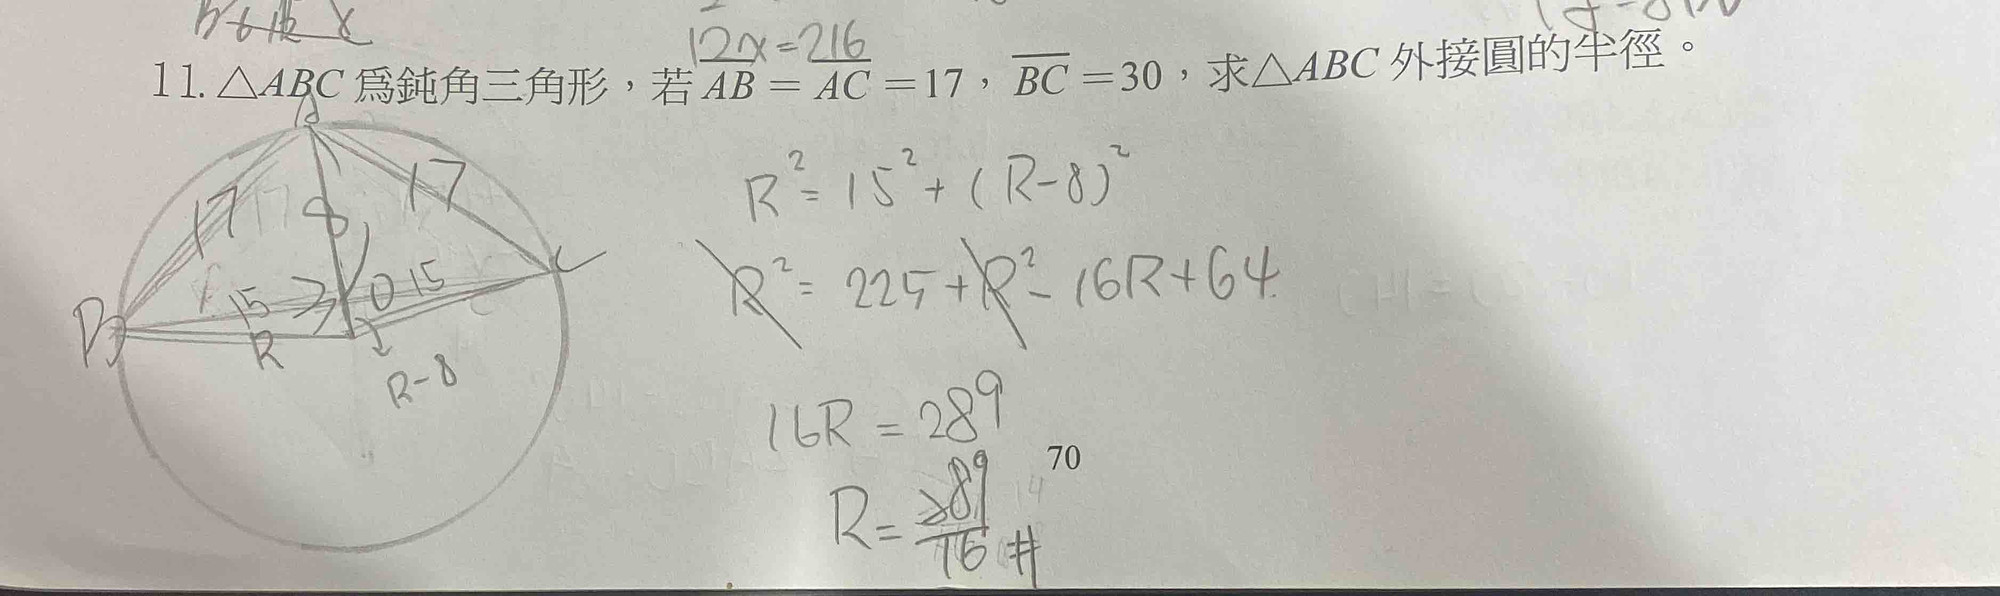 12x=216
11. △ABC 爲鈍角三角形，若 AB = AC =17，BC =30，求△ABC 外接圓的半徑。
A
17
17
8
17
15
15
C
B
R
R-8
R²=15²+(R-8)²
R²=225+R²-16R+64
16R=289
R=289/16 #
70